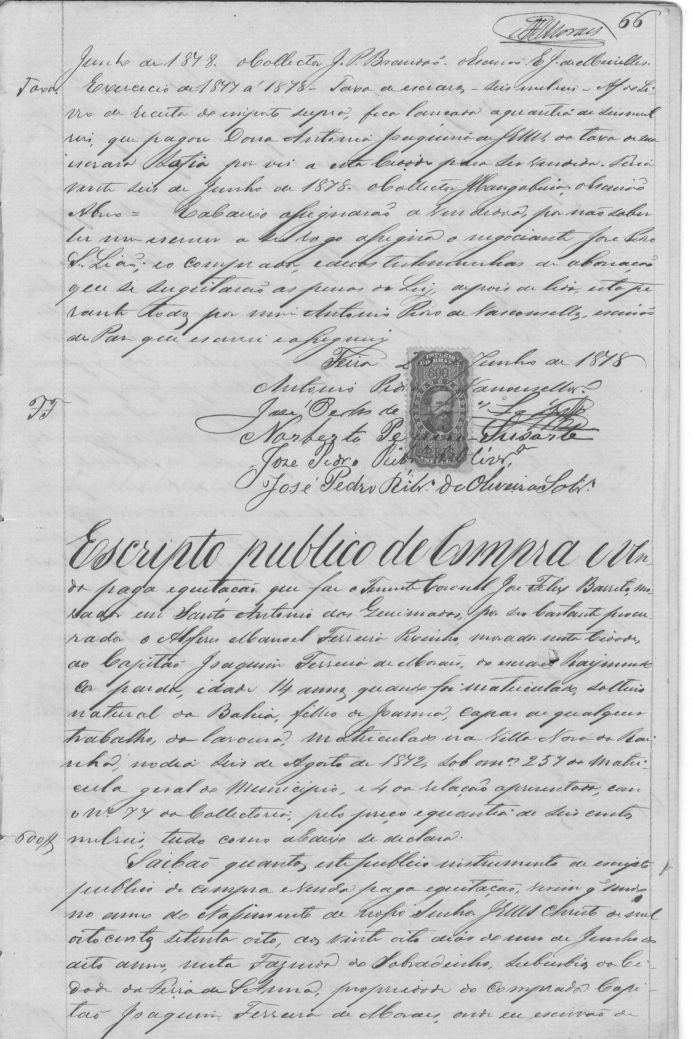 66
Moraes
Junho de 1878. O Collector J. P. Brandão. O Escrivão E. J. de Meirelles.
Taxa
Exercicio de 1877 a 1878 - Taxa de escravos - Seis mil reis - Af do Li-
vro de receita do imposto supra, fica lançada a quantia de seis mil
reis, que pagou Dona Antonia Joaquina de Jesus da taxa de sua
escrava Sofia por vir a esta Cidade para ser vendida. Feira
vinte seis de Junho de 1878. O Collector Mangabeira, o escrivão
Abreu = E abaixo assignarão a vendedora, por não saber
ler nem escrever a seu rogo assigna o negociante José Pedro
S. Lião, e o comprador, e duas testemunhas de abonação
que se sugeitarão as penas da Lei, depois de lido, este pe-
rante todos, por mim Antonio Pedro de Vasconcellos, escrivão
de Paz que escrevi e assignei
Feira Junho de 1878
Antonio Pedro Vasconcellos
José Pedro de S. Lião
Norberto
José Pedro Ribr.
José Pedro Ribr. de Oliveira Sobr.
IMPERIO
DO BRAZIL
Escripto publico de Compra e Ven-
da paga e quitação que faz o Tenente Coronel José Felix Barreto, mo-
rador em Santo Antonio das Queimadas, por seu bastante procu-
rador o Alferes Manoel Ferreira morador nesta Cidade,
ao Capitão Joaquim Ferreira de Moraes, do escravo Raymundo
cor parda, idade 14 annos, quando foi matriculado, solteiro
natural da Bahia, filho de Joanna, capaz de qualquer
trabalho, da lavoura, matriculado na Villa Nova da Rai-
nha, no dia seis de Agosto de 1872, sob o nº 257 da Matri-
cula geral do Municipio, e 4 da relação apresentada, com
o Nº 77 da Collectoria, pelo preço e quantia de seis centos
600$
mil reis, tudo como abaixo se declara.
Saibão quantos este publico instrumento de escripto
publico de compra e venda paga e quitação, virem q' sendo
no anno do Nassimento de nosso Senhor Jesus Christo de mil
oito centos setenta oito, aos vinte oito dias do mez de Junho do
dito anno, nesta Fazenda do Sobradinho, suburbio da Ci-
dade da Feira de Santanna, propriedade do comprador Capi-
tão Joaquim Ferreira de Moraes, onde eu escrivão de